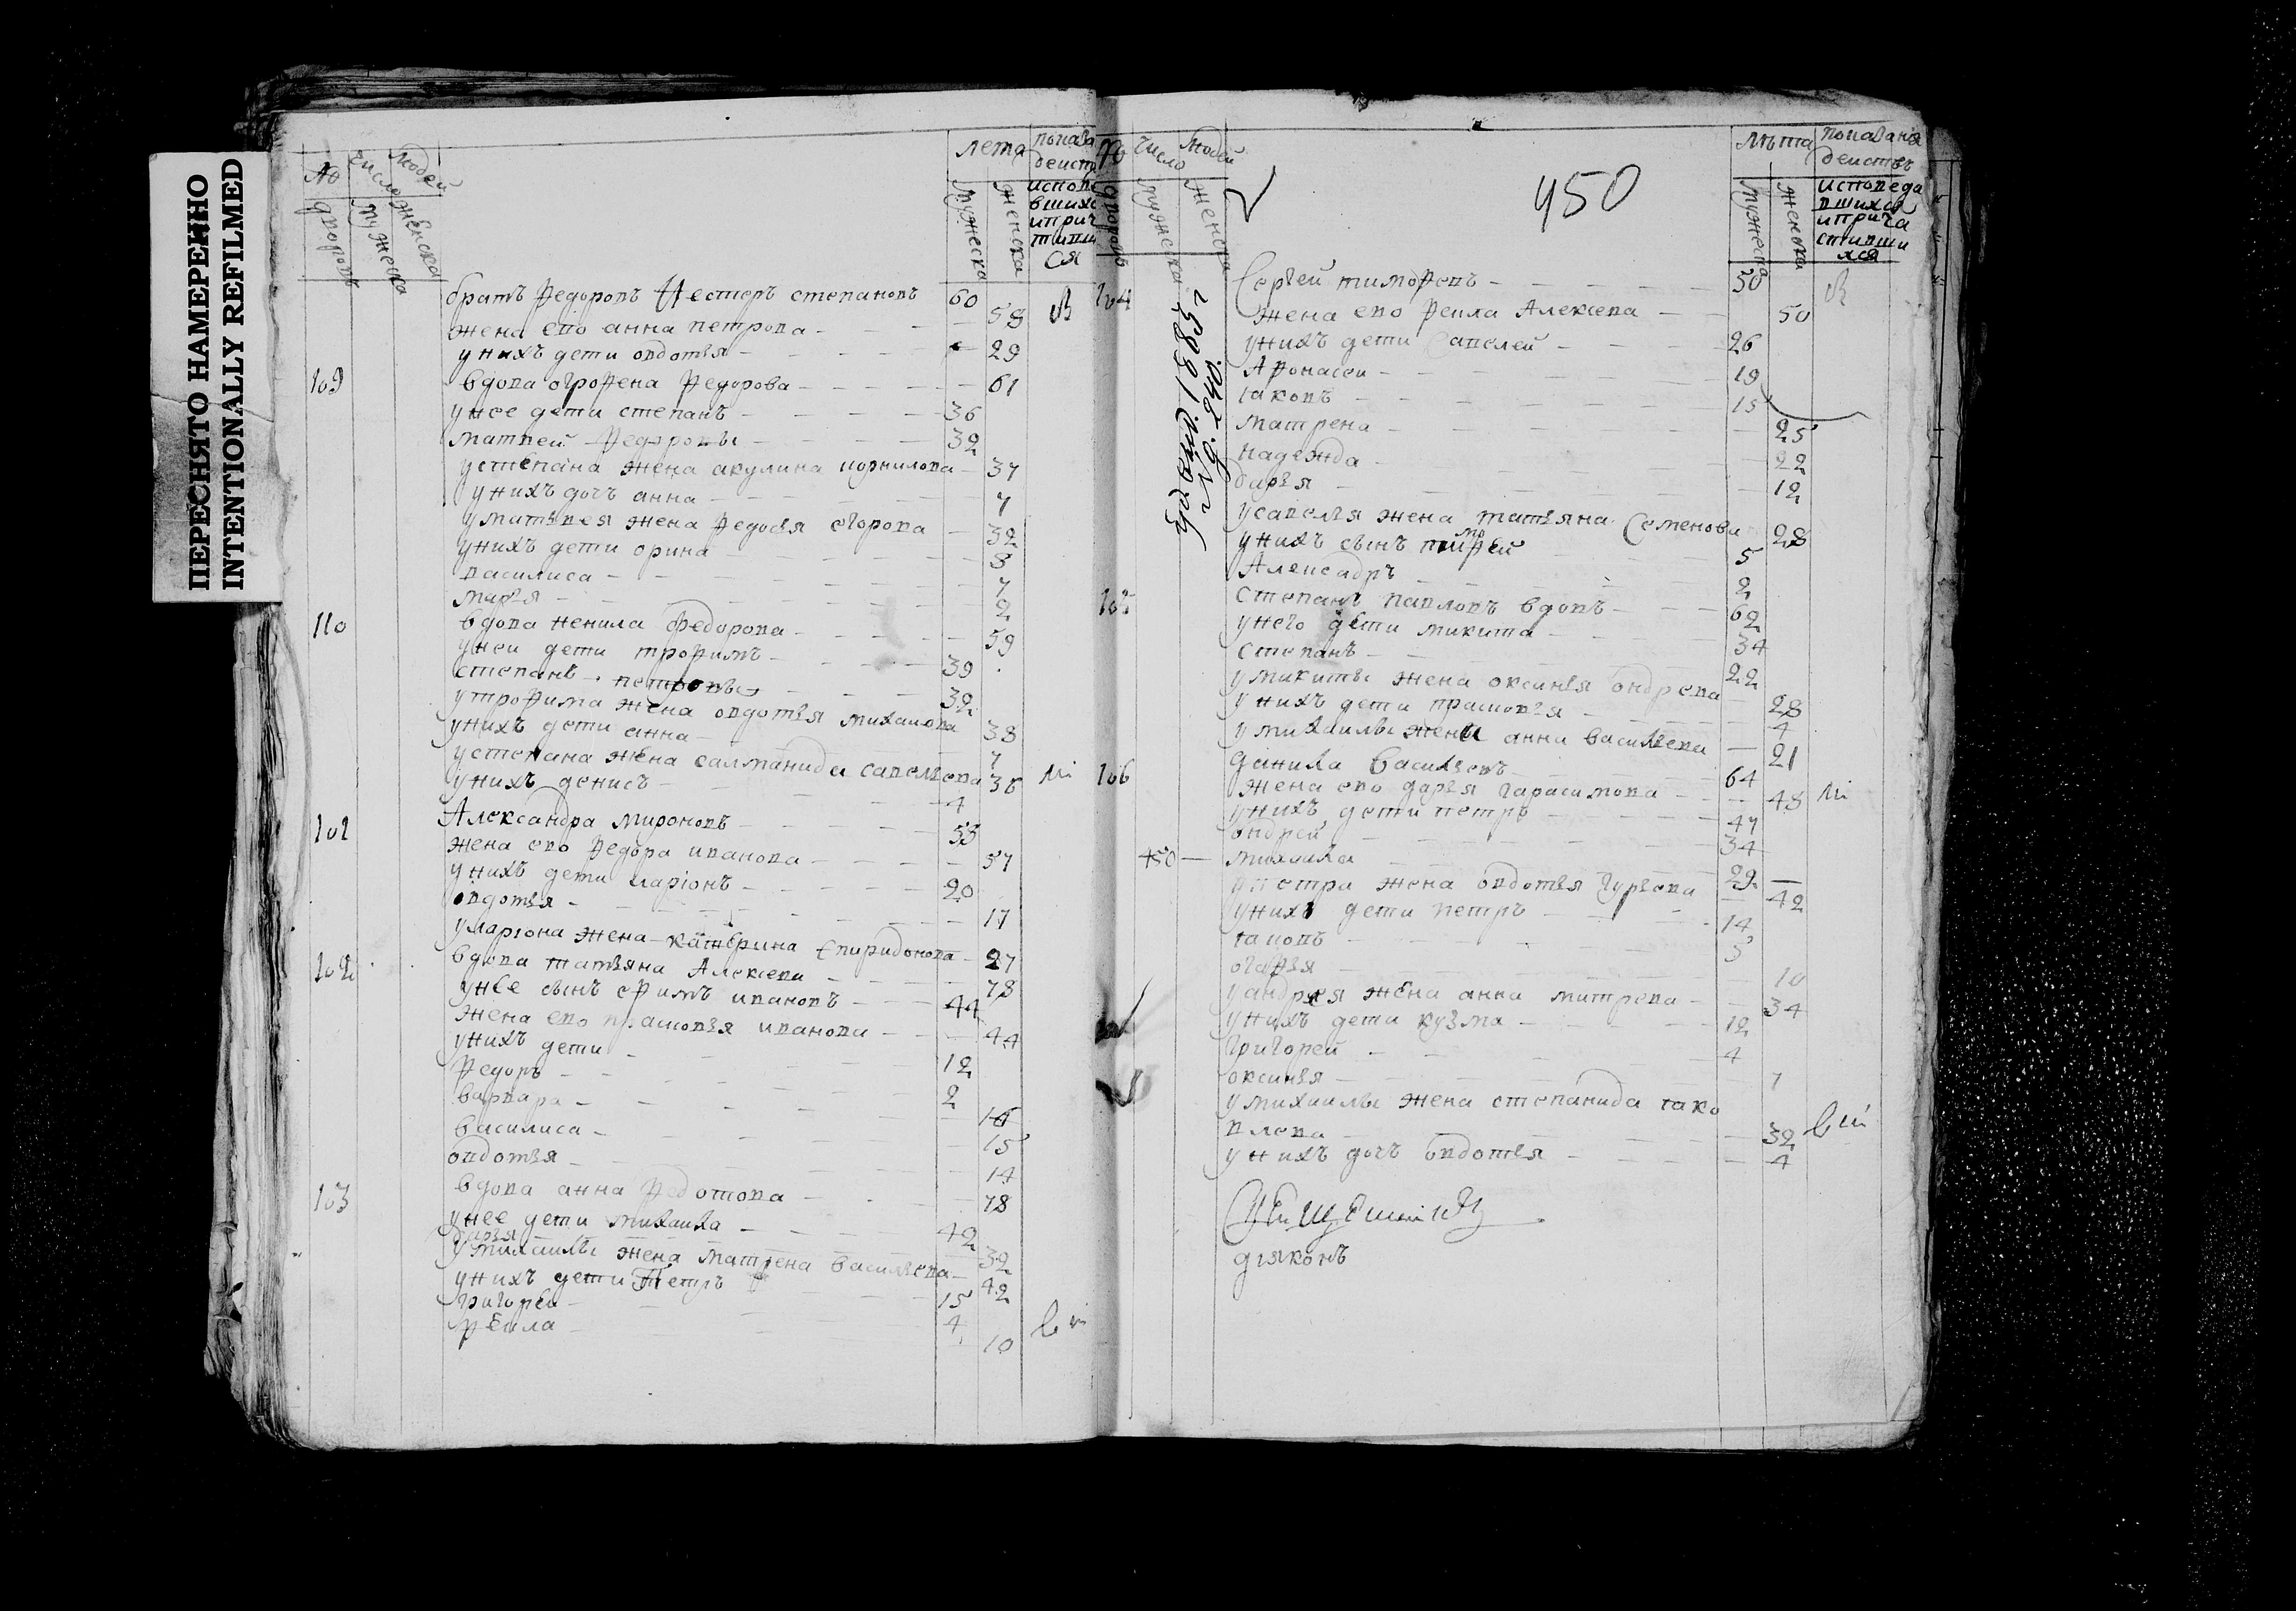 ПЕРЕСНЯТО НАМЕРЕННО
INTENTIONALLY REFILMED
№ число людей
дворовъ мужеска женска
лета
мужеска женска
братъ Федоровъ Нестеръ степановъ 60
жена ево анна петрова 58
у нихъ дети овдотья 29
109 вдова огрофена Федорова 61
у нее дети степанъ 36
матвей Федоровы 32
у степана жена акулина корнилова 37
у нихъ дочъ анна 7
у матвея жена Федосья егорова 32
у нихъ дети орина 8
василиса 7
марья 2
110 вдова ненила Федорова 59
у неи дети трофимъ 39
степанъ петровы 32
у трофима жена овдотья михаилова 38
у нихъ дети анна 7
у степана жена салманида савельева 36
у нихъ денисъ 4
101 Александра мироновъ 55
жена ево Федора иванова 57
у нихъ дети ларіонъ 20
овдотья 17
у ларіона жена катерина Спиридонова 27
102 вдова татьяна Алексеева 78
у нее сынъ ефимъ ивановъ 44
жена ево прасковья иванова 44
у нихъ дети
Федоръ 12
варвара 2
василиса 15
овдотья 14
103 вдова анна Федотова 78
у нее дети михаила 42
дарья 32
у михаилы жена матрена васильева 42
у нихъ дети Петръ 15
григореи 4
Фекла 10
450
число людей
мужеска женска
лѣта показанія действъ
мужеска женска исповеда вшихся и прича стивши хся
104 Сергей тимофеевъ 50
жена ево Фекла Алексеева 50
у нихъ дети Савелей 26
Афонасеи 19
іаковъ 15
матрена 25
надежда 22
дарья 12
у савелья жена татьяна Семенова 28
у нихъ сынъ 5
Алексадръ 2
105 степанъ павловъ вдовъ 62
у него дети микита 34
степанъ 22
у микиты жена оксинья ондреева 28
у нихъ дети прасковья 4
у михаилы жена анна васильева 21
106 данила васильевъ 64
жена ево дарья гарасимова 48
у нихъ дети петръ 47
ондрей 34
450 михаила 29
у петра жена овдотья гурьева 42
у нихъ дети петръ 14
іаковъ 3
огафья 10
у андрея жена анна митрева 34
у нихъ дети кузма 12
григорей 4
оксинья 7
у михаилы жена степанида іако
влева 32
у нихъ дочъ овдотья 4
діяконъ